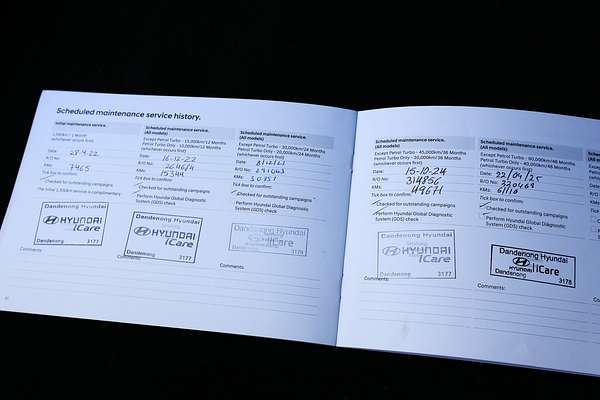 Scheduled maintenance service history.
Initial maintenance service.
1,500km / 1 Month
(whichever occurs first)
Date: 28-4-22
R/O No:
KMs: 7465
Tick box to confirm:
Checked for outstanding campaigns
The initial 1,500km service is complimentary
Dandenong Hyundai
HYUNDAI
iCare
Dandenong 3177
Comments:
Scheduled maintenance service.
(All models)
Except Petrol Turbo - 15,000km/12 Months
Petrol Turbo Only - 10,000km/12 Months
(whichever occurs first)
Date: 16-12-22
R/O No:
KMs: 15344
Tick box to confirm:
Checked for outstanding campaigns
Perform Hyundai Global Diagnostic
System (GDS) check
Dandenong Hyundai
HYUNDAI
iCare
Dandenong 3177
Comments:
Scheduled maintenance service.
(All models)
Except Petrol Turbo - 30,000km/24 Months
Petrol Turbo Only - 20,000km/24 Months
(whichever occurs first)
Date:
R/O No:
KMs: 30351
Tick box to confirm:
Checked for outstanding campaigns
Perform Hyundai Global Diagnostic
System (GDS) check
HYUNDAI
iCare
Comments:
Scheduled maintenance service.
(All models)
Except Petrol Turbo - 45,000km/36 Months
Petrol Turbo Only - 30,000km/36 Months
(whichever occurs first)
Date: 15-10-24
R/O No: 314855
KMs: 49671
Tick box to confirm:
Checked for outstanding campaigns
Perform Hyundai Global Diagnostic
System (GDS) check
HYUNDAI
iCare
3177
Comments:
Scheduled maintenance service.
(All models)
Except Petrol Turbo - 60,000km/48 Months
Petrol Turbo Only - 40,000km/48 Months
(whichever occurs first)
Date: 22/04/25
R/O No: 320469
KMs:
Tick box to confirm:
Checked for outstanding campaigns
Perform Hyundai Global Diagnostic
System (GDS) check
Dandenong Hyundai
HYUNDAI iCare
Dandenong 3175
Comments: